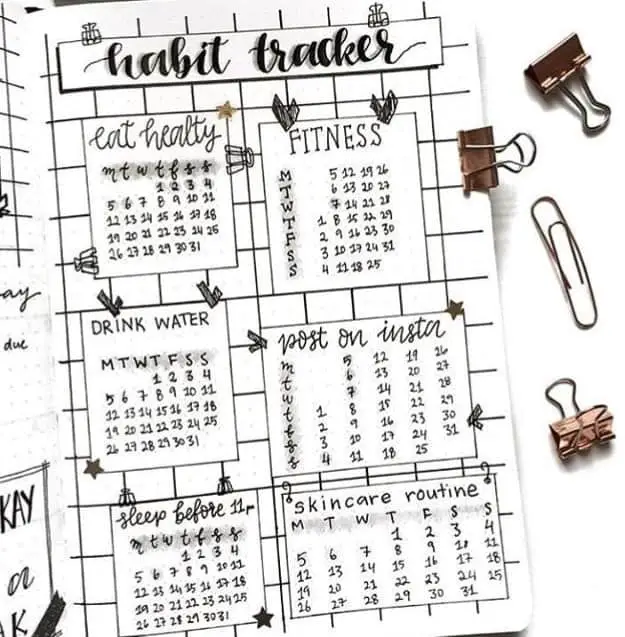 habit tracker
eat healty
m t w t f s s
1 2 3 4
5 6 7 8 9 10 11
12 13 14 15 16 17 18
19 20 21 22 23 24 25
26 27 28 29 30 31
FITNESS
M 5 12 19 26
T 6 13 20 27
W 7 14 21 28
T 1 8 15 22 29
F 2 9 16 23 30
S 3 10 17 24 31
S 4 11 18 25
DRINK WATER
M T W T F S S
1 2 3 4
5 6 7 8 9 10 11
12 13 14 15 16 17 18
19 20 21 22 23 24 25
26 27 28 29 30 31
post on insta
m 5 12 19 26
t 6 13 20 27
w 7 14 21 28
t 1 8 15 22 29
f 2 9 16 23 30
s 3 10 17 24 31
s 4 11 18 25
sleep before 11
m t w t f s s
1 2 3 4
5 6 7 8 9 10 11
12 13 14 15 16 17 18
19 20 21 22 23 24 25
26 27 28 29 30 31
skincare routine
M T W T F S S
1 2 3 4
5 6 7 8 9 10 11
12 13 14 15 16 17 18
19 20 21 22 23 24 25
26 27 28 29 30 31
ay
due
KAY
a
AK